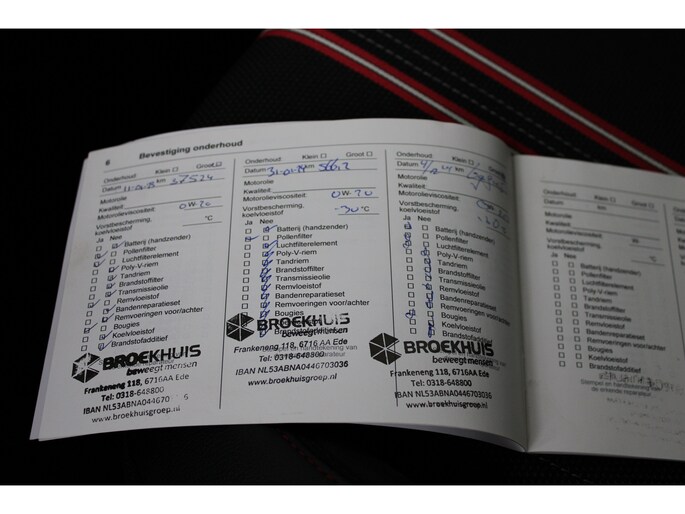 6 Bevestiging onderhoud
Onderhoud: Klein Groot
Datum km 37524
Motorolie
Kwaliteit:
Motorolieviscositeit: 0W-20
Vorstbescherming, °C
koelvloeistof
Ja Nee
Batterij (handzender)
Pollenfilter
Luchtfilterelement
Poly-V-riem
Tandriem
Brandstoffilter
Transmissieolie
Remvloeistof
Bandenreparatieset
Remvoeringen voor/achter
Bougies
Koelvloeistof
Brandstofadditief
BROEKHUIS
beweegt mensen
Frankeneng 118, 6716AA Ede
Tel: 0318-648800
IBAN NL53ABNA044670
www.broekhuisgroep.nl
Onderhoud: Klein Groot
Datum km
Motorolie
Kwaliteit:
Motorolieviscositeit: 0W-20
Vorstbescherming, -30 °C
koelvloeistof
Ja Nee
Batterij (handzender)
Pollenfilter
Luchtfilterelement
Poly-V-riem
Tandriem
Brandstoffilter
Transmissieolie
Remvloeistof
Bandenreparatieset
Remvoeringen voor/achter
Bougies
Brandstofadditief
BROEKHUIS
beweegt mensen
Frankeneng 118, 6716 AA Ede
Tel: 0318-648800
IBAN NL53ABNA0446703036
www.broekhuisgroep.nl
Onderhoud: Klein
Datum km
Motorolie
Kwaliteit:
Motorolieviscositeit:
Vorstbescherming,
koelvloeistof
Ja Nee
Batterij (handzender)
Pollenfilter
Luchtfilterelement
Poly-V-riem
Tandriem
Brandstoffilter
Transmissieolie
Remvloeistof
Bandenreparatieset
Remvoeringen voor/achter
Bougies
Koelvloeistof
Brandstofadditief
BROEKHUIS
beweegt mensen
Frankeneng 118, 6716 AA Ede
Tel: 0318-648800
IBAN NL53ABNA0446703036
www.broekhuisgroep.nl
Onderhoud: Klein Groot
Datum km
Motorolie
Kwaliteit:
Motorolieviscositeit:
Vorstbescherming,
koelvloeistof
Ja Nee
Batterij (handzender)
Pollenfilter
Luchtfilterelement
Poly-V-riem
Tandriem
Brandstoffilter
Transmissieolie
Remvloeistof
Bandenreparatieset
Remvoeringen voor/achter
Bougies
Koelvloeistof
Brandstofadditief
Stempel en handtekening van
de erkende reparateur